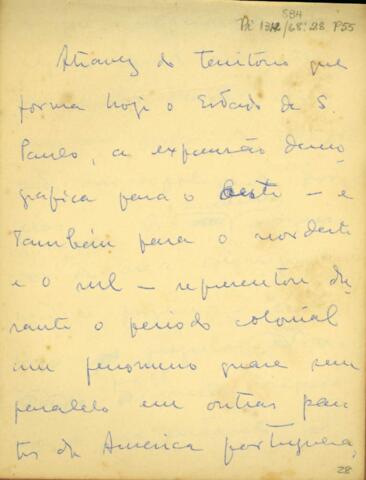 584
Pi 132/68:28 P55
Através do território que
forma hoje o Estado de S.
Paulo, a expansão demo-
gráfica para o Oeste – e
também para o nordeste
e o sul – representou du-
rante o período colonial
um fenomeno quase sem
paralelo em outras par-
tes da America portuguesa,
28